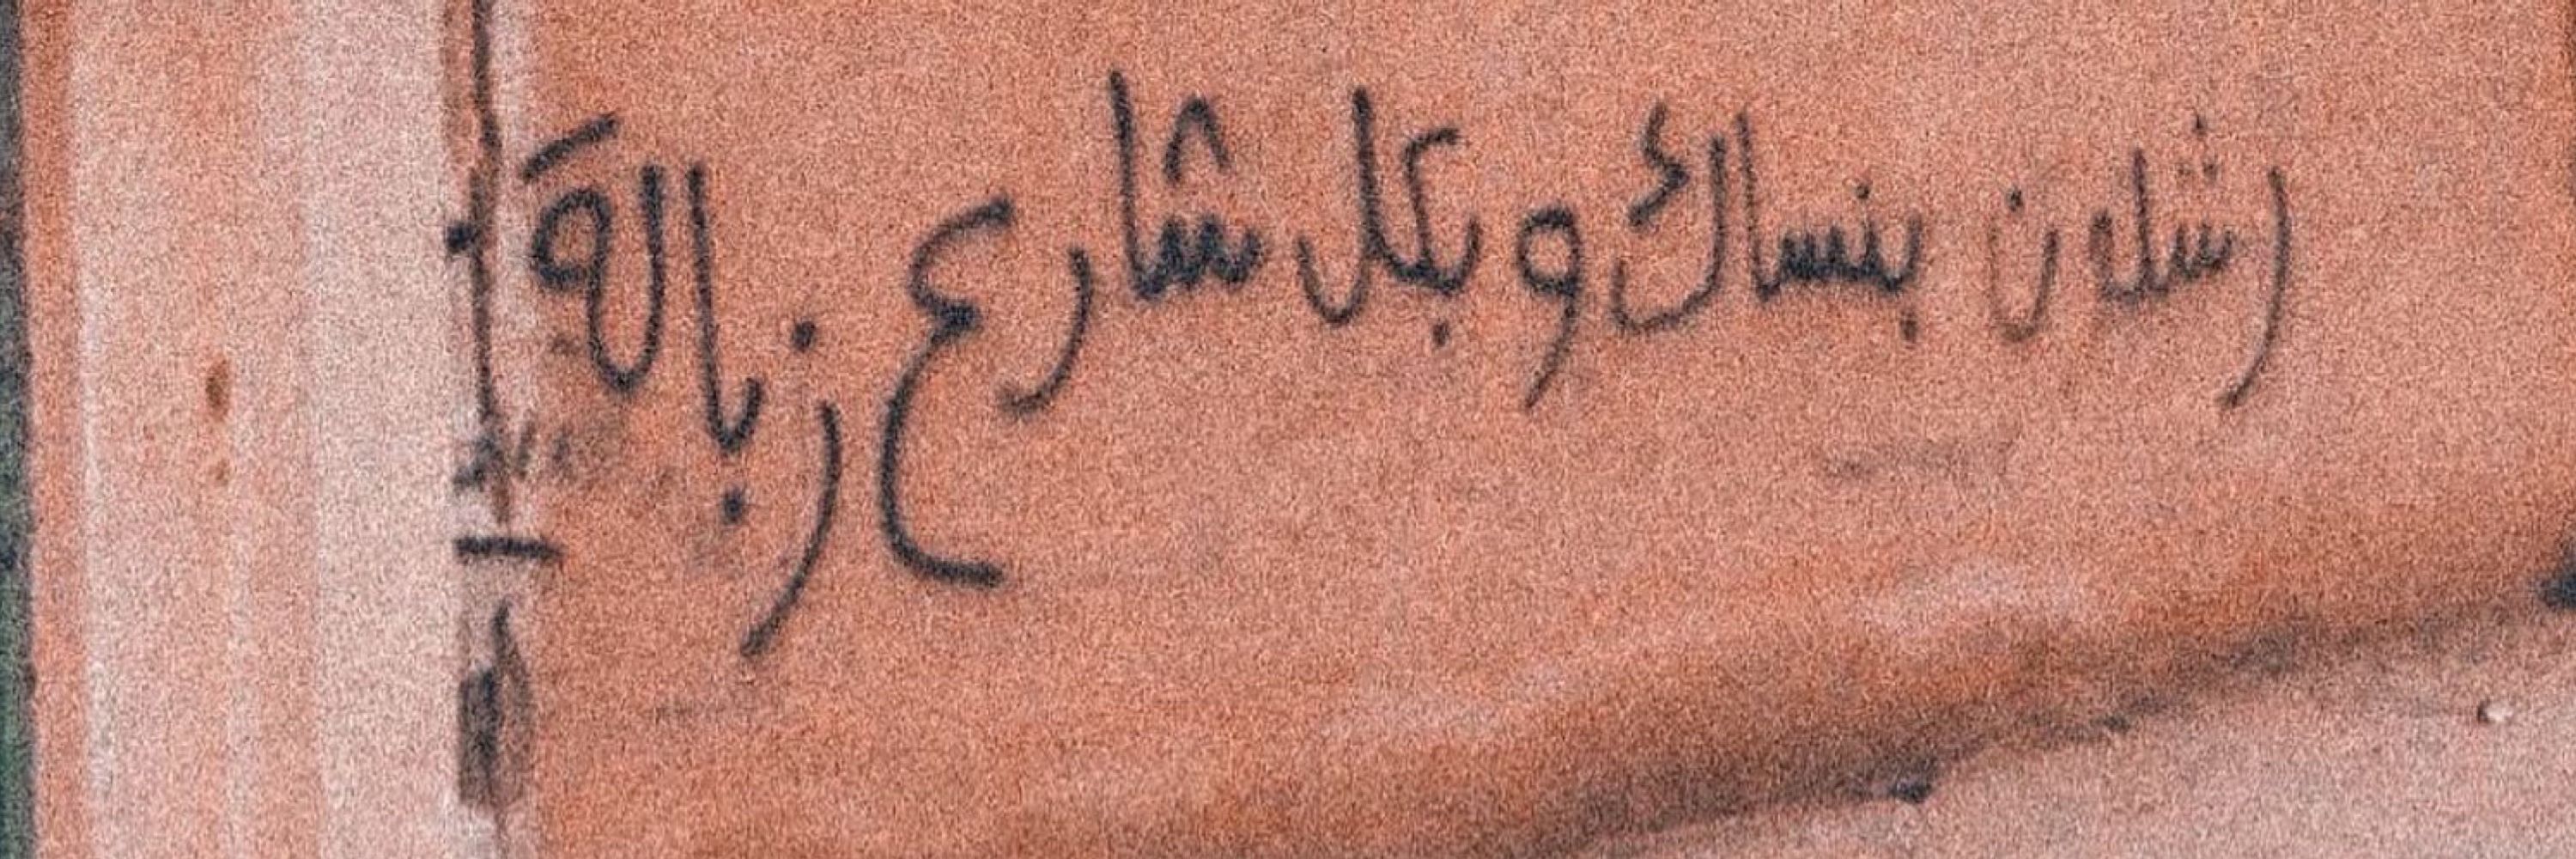 (شلون بنساك و بكل شارع زبالة)